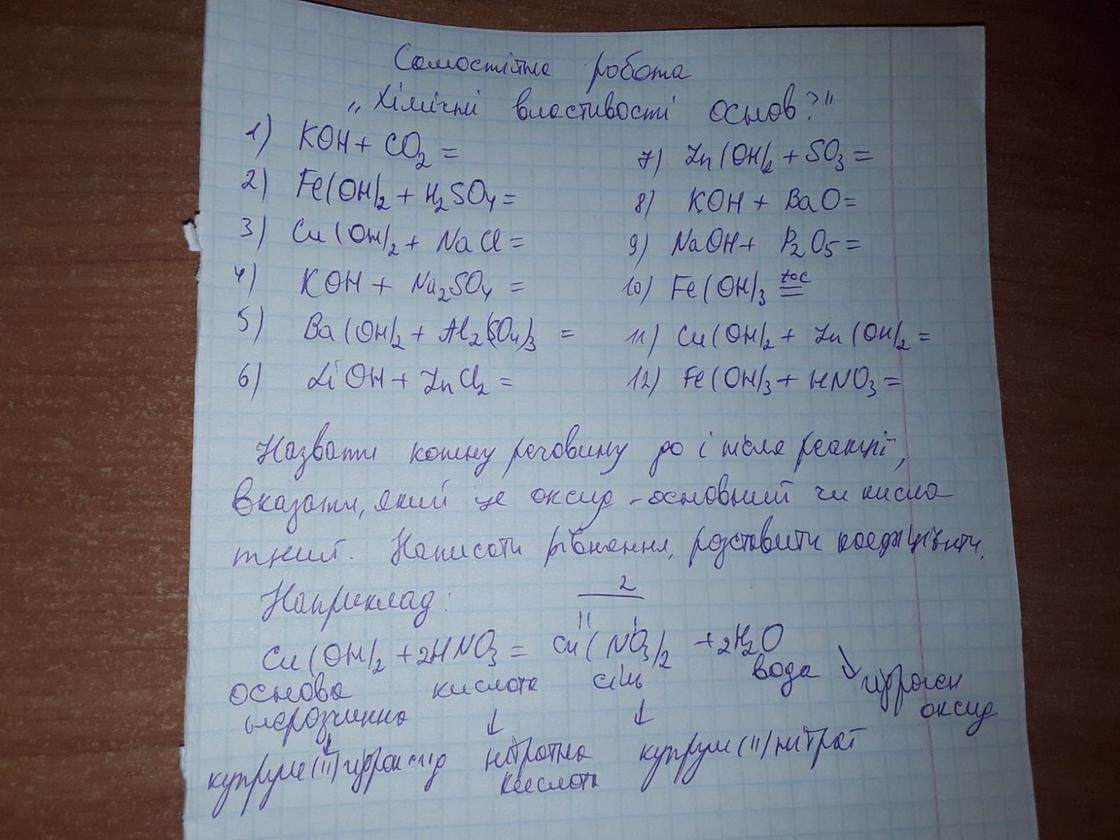 Самостійна робота
"Хімічні властивості основ?"
1) KOH + CO₂ =
2) Fe(OH)₂ + H₂SO₄ =
3) Cu(OH)₂ + NaCl =
4) KOH + Na₂SO₄ =
5) Ba(OH)₂ + Al₂(SO₄)₃ =
6) LiOH + ZnCl₂ =
7) Zn(OH)₂ + SO₃ =
8) KOH + BaO =
9) NaOH + P₂O₅ =
10) Fe(OH)₃ =
11) Cu(OH)₂ + Zn(OH)₂ =
12) Fe(OH)₃ + HNO₃ =
Назвати кожну речовину до і після реакції,
вказати, який це оксид - основний чи кисло
тний. Написати рівняння, розставити коефіцієнти.
Наприклад:
2
II I
Cu(OH)₂ + 2HNO₃ = Cu(NO₃)₂ + 2H₂O
основа кислота сіль вода ↘ гідроген
нерозчинна оксид
↓ ↓ ↓
купрум(II)гідроксид нітратна купрум(II)нітрат
кислота